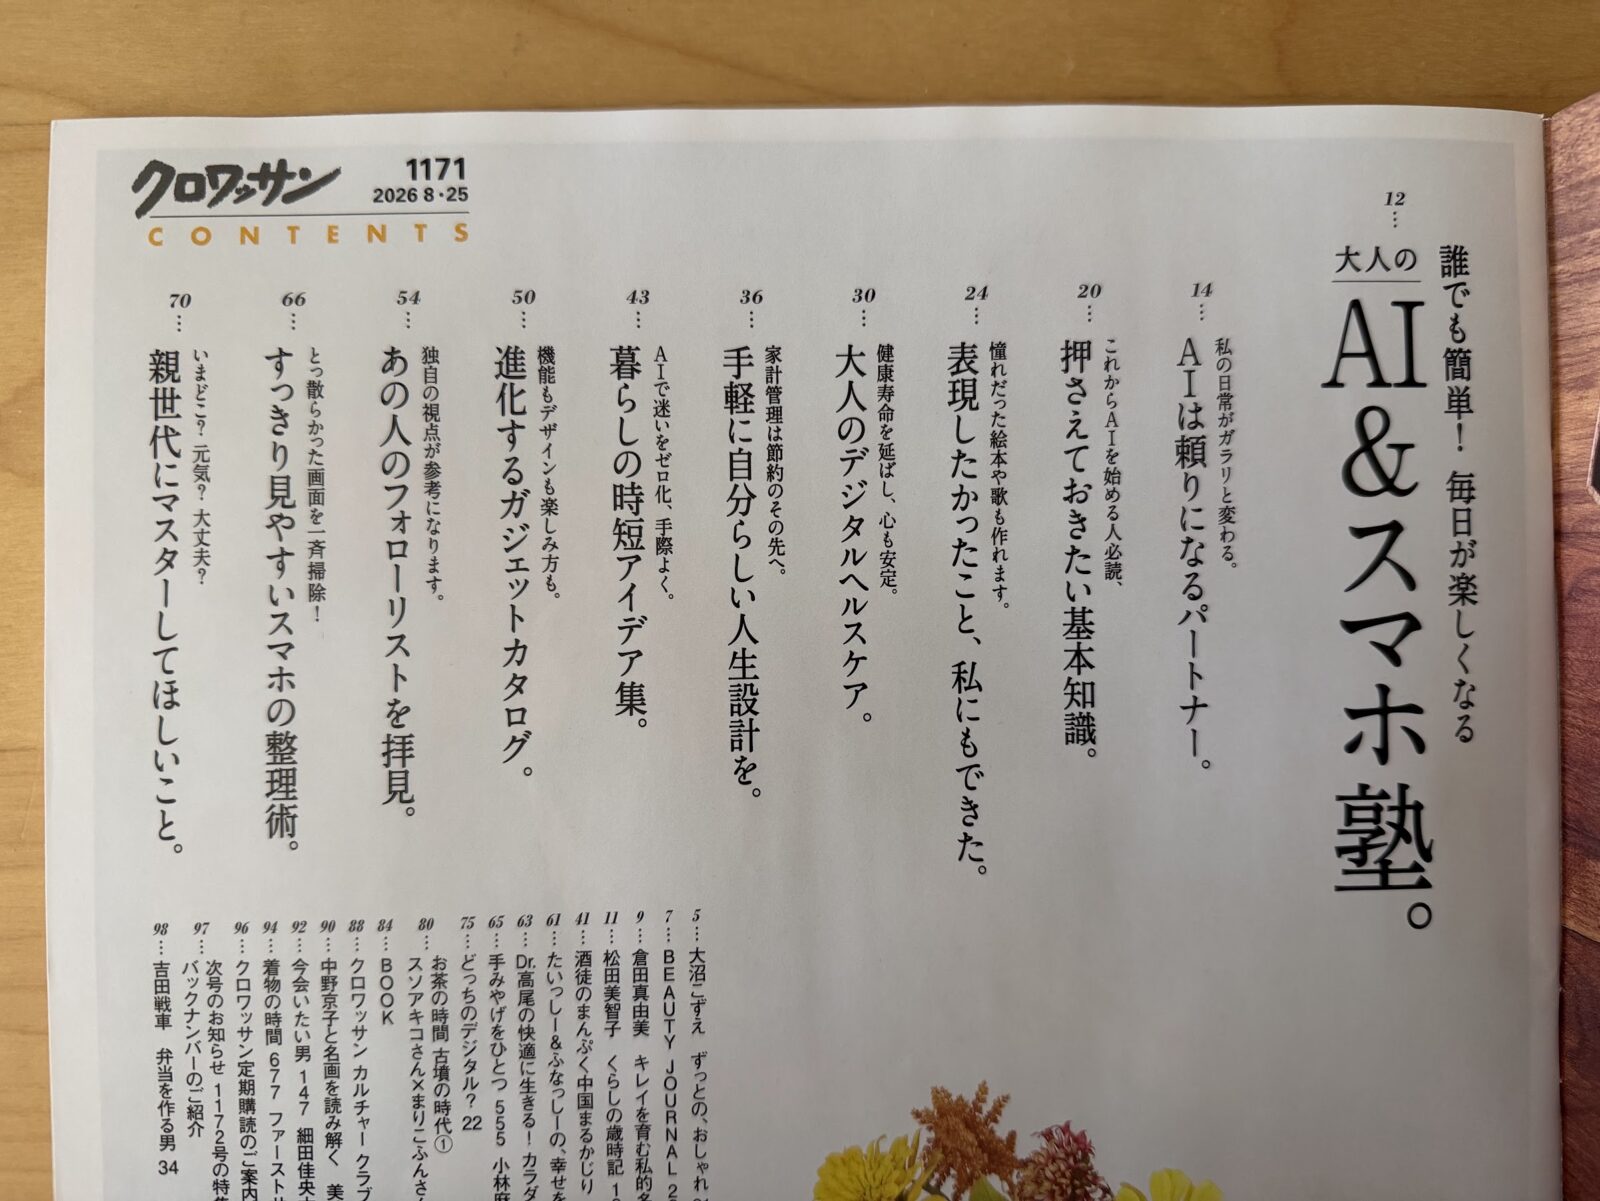 クロワッサン
1171
2026 8・25
CONTENTS
12…
誰でも簡単！ 毎日が楽しくなる
大人の
AI＆スマホ塾。
14…
私の日常がガラリと変わる。
AIは頼りになるパートナー。
20…
これからAIを始める人必読、
押さえておきたい基本知識。
24…
憧れだった絵本や歌も作れます。
表現したかったこと、私にもできた。
30…
健康寿命を延ばし、心も安定。
大人のデジタルヘルスケア。
36…
家計管理は節約のその先へ。
手軽に自分らしい人生設計を。
43…
AIで迷いをゼロ化、手際よく。
暮らしの時短アイデア集。
50…
機能もデザインも楽しみ方も。
進化するガジェットカタログ。
54…
独自の視点が参考になります。
あの人のフォローリストを拝見。
66…
とっ散らかった画面を一斉掃除！
すっきり見やすいスマホの整理術。
70…
いまどこ？ 元気？ 大丈夫？
親世代にマスターしてほしいこと。
5…大沼こずえ ずっとの、おしゃれ
7…BEAUTY JOURNAL 2
9…倉田真由美 キレイを育む私的
11…松田美智子 くらしの歳時記 1
41…酒徒のまんぷく中国まるかじり
61…たいっしー＆ふなっしーの、幸せを
63…Dr.高尾の快適に生きる！カラダ
65…手みやげをひとつ 555 小林
75…どっちのデジタル？ 22
80…お茶の時間 古墳の時代①
スソアキコさん×まりこふんさん
84…BOOK
88…クロワッサン カルチャークラブ
90…中野京子と名画を読み解く 美
92…今会いたい男 147 細田佳央
94…着物の時間 677 ファースト
96…クロワッサン定期購読のご案内
97…次号のお知らせ 1172号の特集
バックナンバーのご紹介
98…吉田戦車 弁当を作る男 34